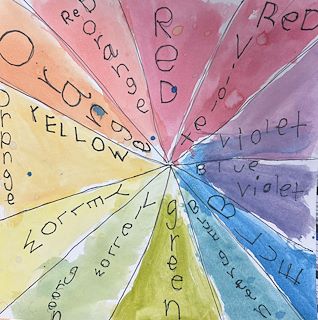 RED
ReD
Violet
violet
Blue
violet
BLUE
Blue
green
green
Yellow
green
YELLOW
YELLOW
orange
Orange
ReD
orange